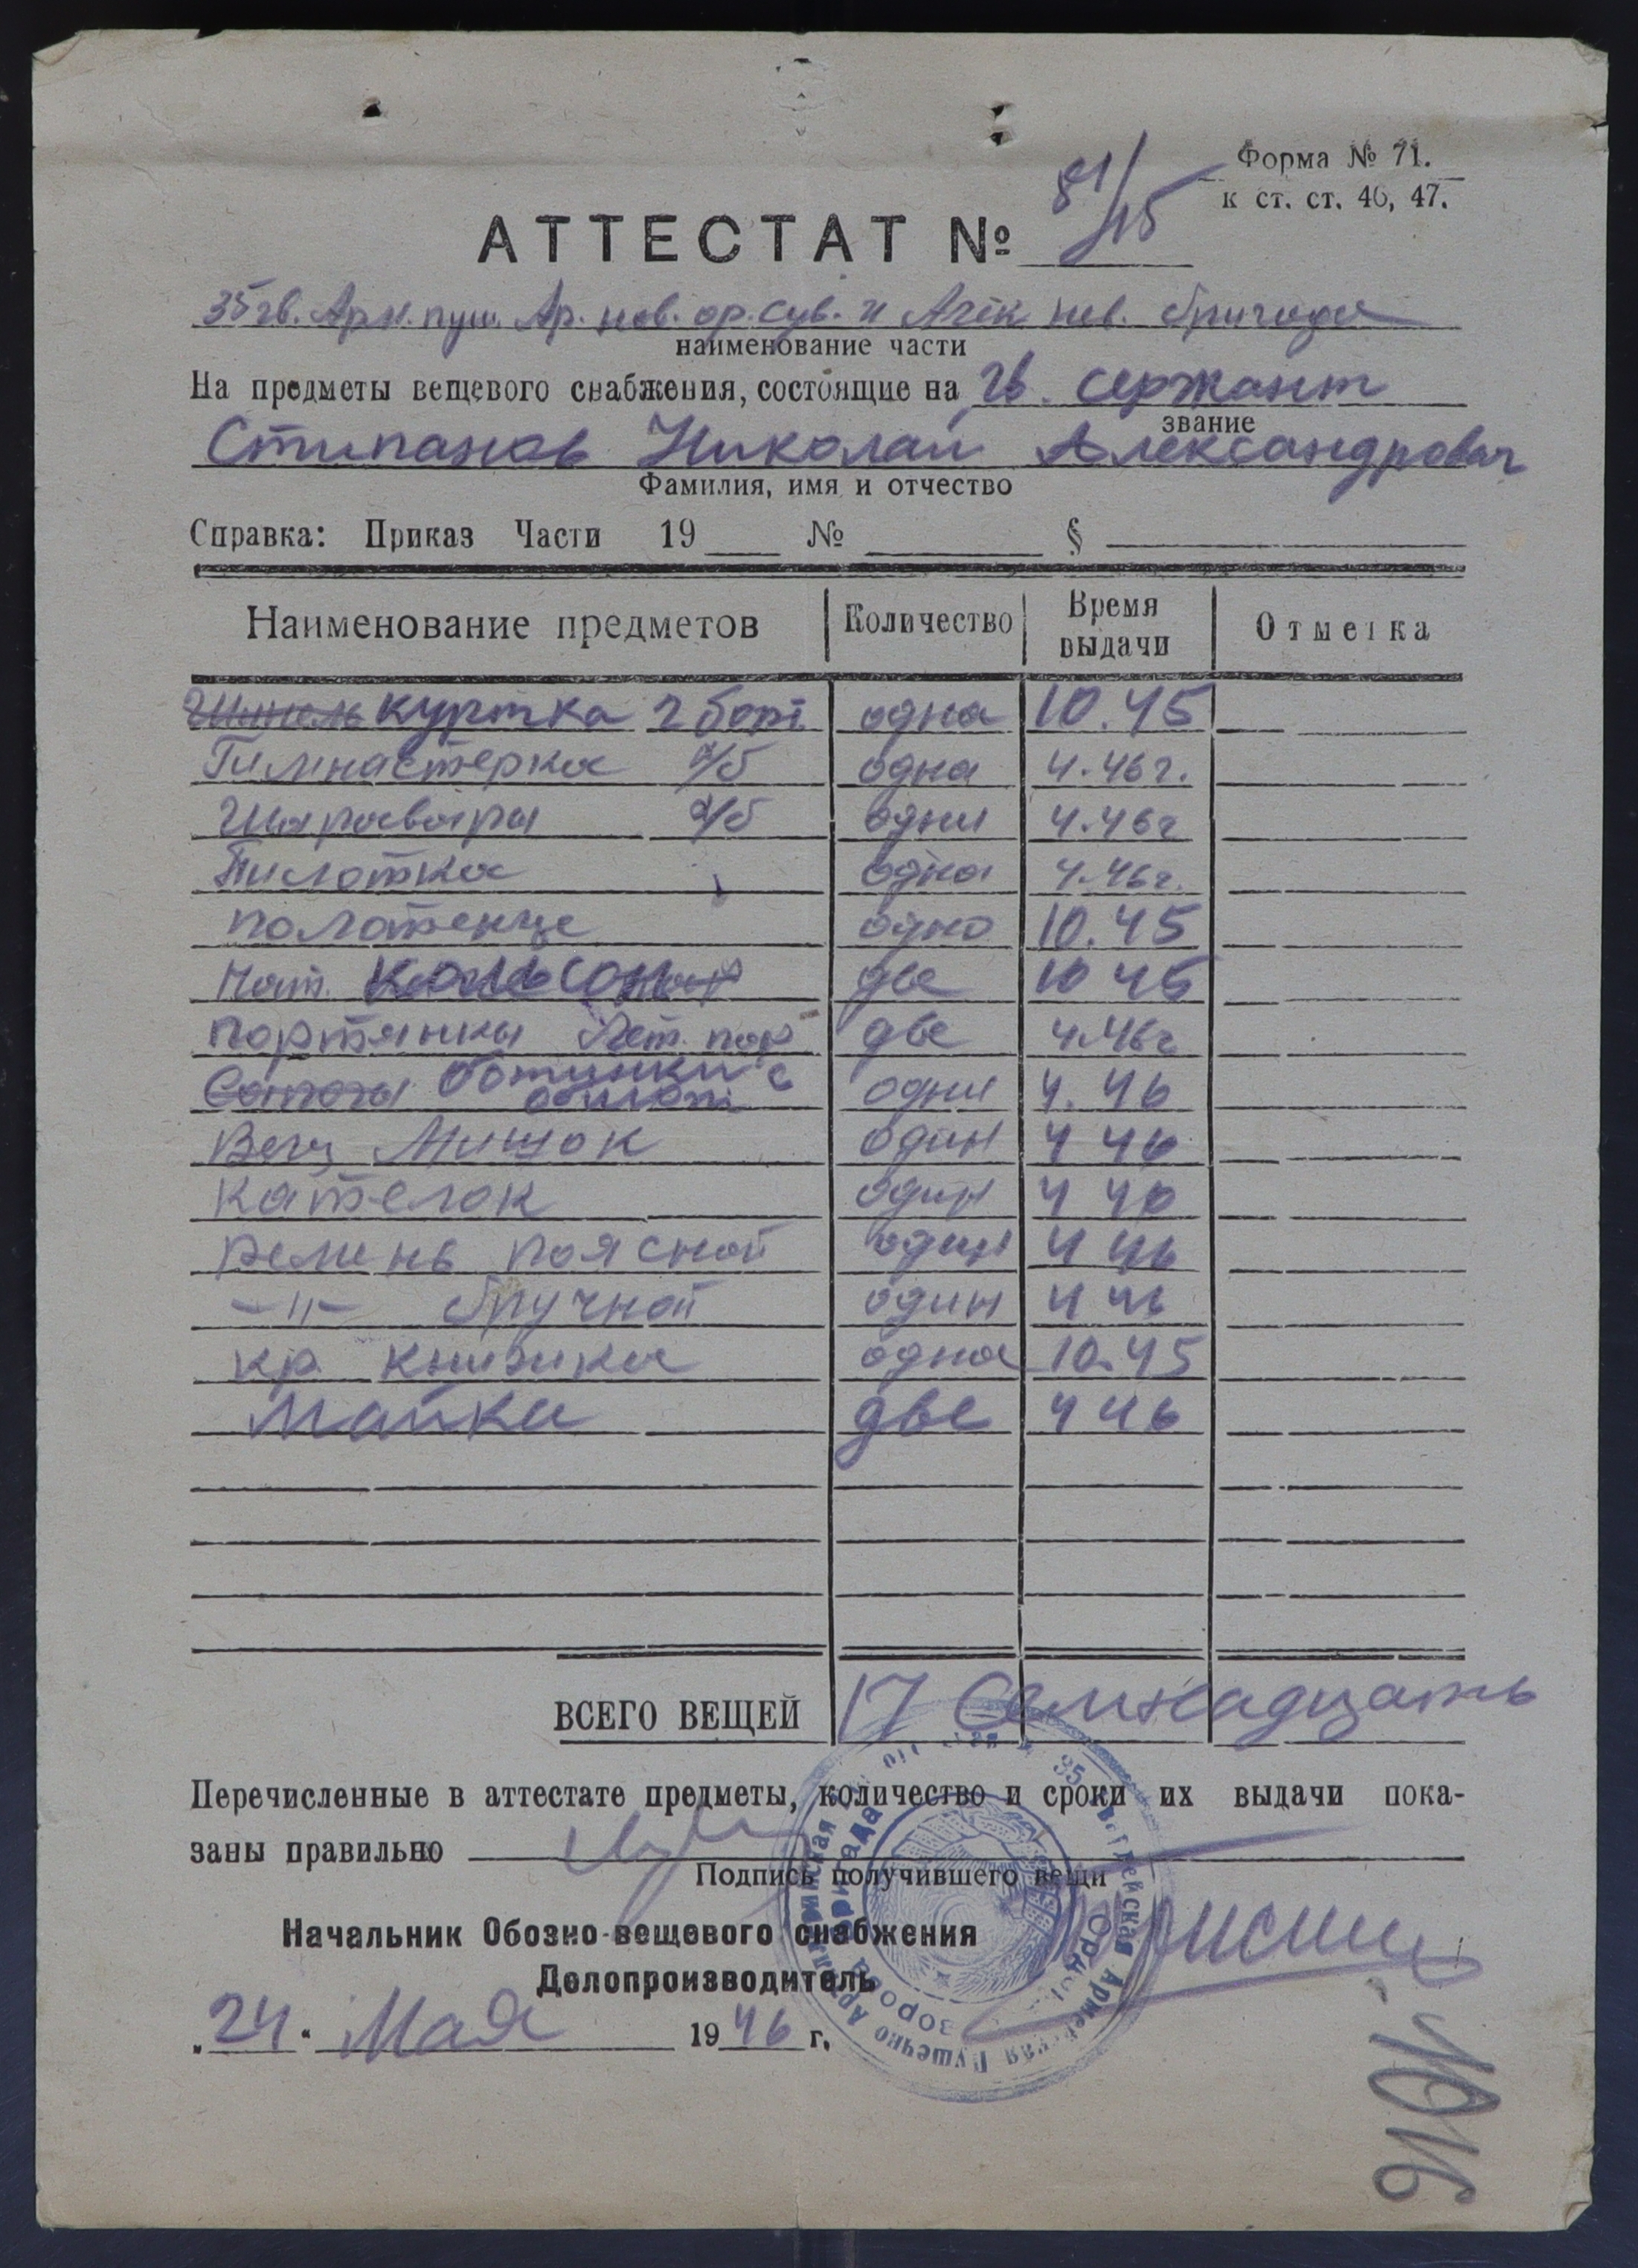 Форма № 71.
к ст. ст. 46, 47.
АТТЕСТАТ № 81/45
35 гв. Арм. пуш. Ар. нев. ор. Сув. и Алек нев. бригада
наименование части
На предметы вещевого снабжения, состоящие на гв. сержант
звание
Стипанов Николай Александрович
Фамилия, имя и отчество
Справка: Приказ Части 19 № §
Наименование предметов Количество Время выдачи Отметка
Шинель куртка 2 борт одна 10.45
Гимнастерка х/б одна 4.46 г.
Шаравары х/б одни 4.46 г
Пилотка одна 4.46 г.
полотенце одно 10.45
Нат. кальсоны две 10 45
портянки лет. пар две 4.46 г
Сапоги ботинки с обмот одни 4.46
Вещ Мишок один 4 46
Кателок один 4 46
ремень поясной один 4 46
–"– бручной один 4 46
кр. книжка одна 10.45
Майки две 4 46
ВСЕГО ВЕЩЕЙ 17 Семнадцать
Перечисленные в аттестате предметы, количество и сроки их выдачи пока-
заны правильно
Подпись получившего вещи
Начальник Обозно-вещевого снабжения
Делопроизводитель
„24“ Мая 1946 г.